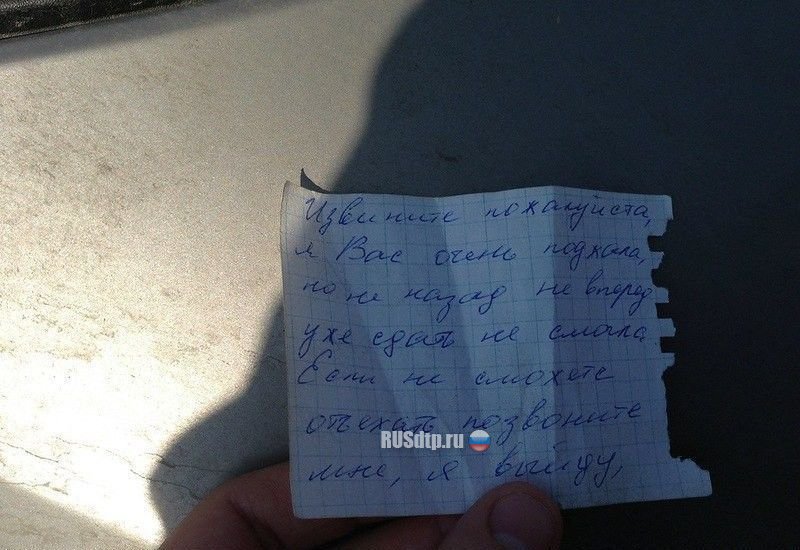 Извините пожалуйста,
я Вас очень поджала,
но не назад не вперед
уже сдать не смогла.
Если не сможете
отъехать позвоните
RUSdtp.ru
мне, я выйду,